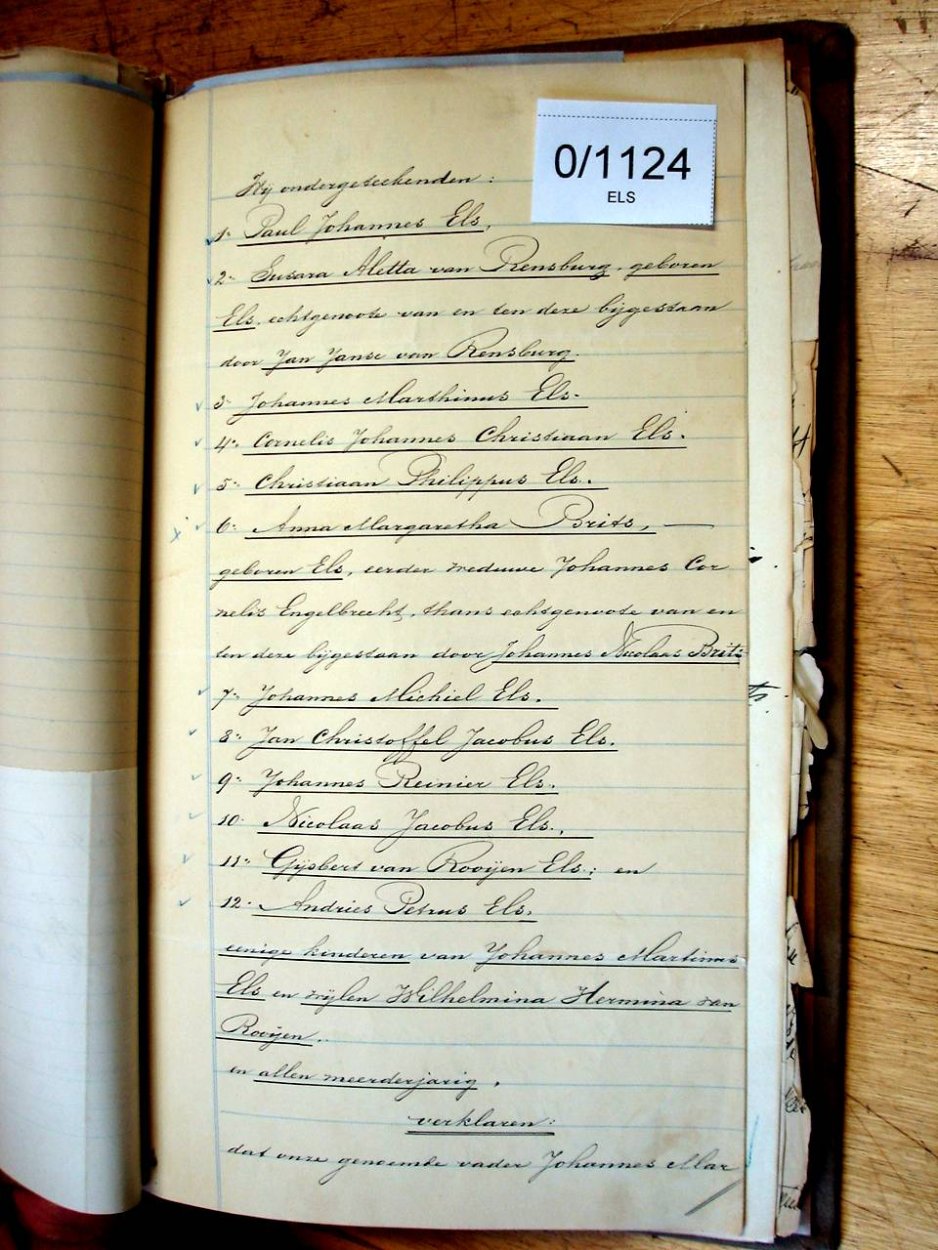 0/1124
ELS
Wij ondergeteekenden:
1. Paul Johannes Els,
2. Susara Aletta van Rensburg, geboren
Els, echtgenoote van en ten deze bijgestaan
door Jan Janse van Rensburg.
3. Johannes Marthinus Els.
4. Cornelis Johannes Christiaan Els.
5. Christiaan Philippus Els.
6. Anna Margaretha Brits, —
geboren Els, eerder weduwe Johannes Cor
nelis Engelbrecht, thans echtgenoote van en
ten deze bijgestaan door Johannes Nicolaas Brits
7. Johannes Michiel Els.
8. Jan Christoffel Jacobus Els.
9. Johannes Reinier Els.
10. Nicolaas Jacobus Els.,
11. Gijsbert van Rooijen Els; en
12. Andries Petrus Els.
eenige kinderen van Johannes Martinus
Els en wijlen Wilhelmina Hermina van
Rooijen.
en allen meerderjarig,
verklaren:
dat onze genoemde vader Johannes Mar